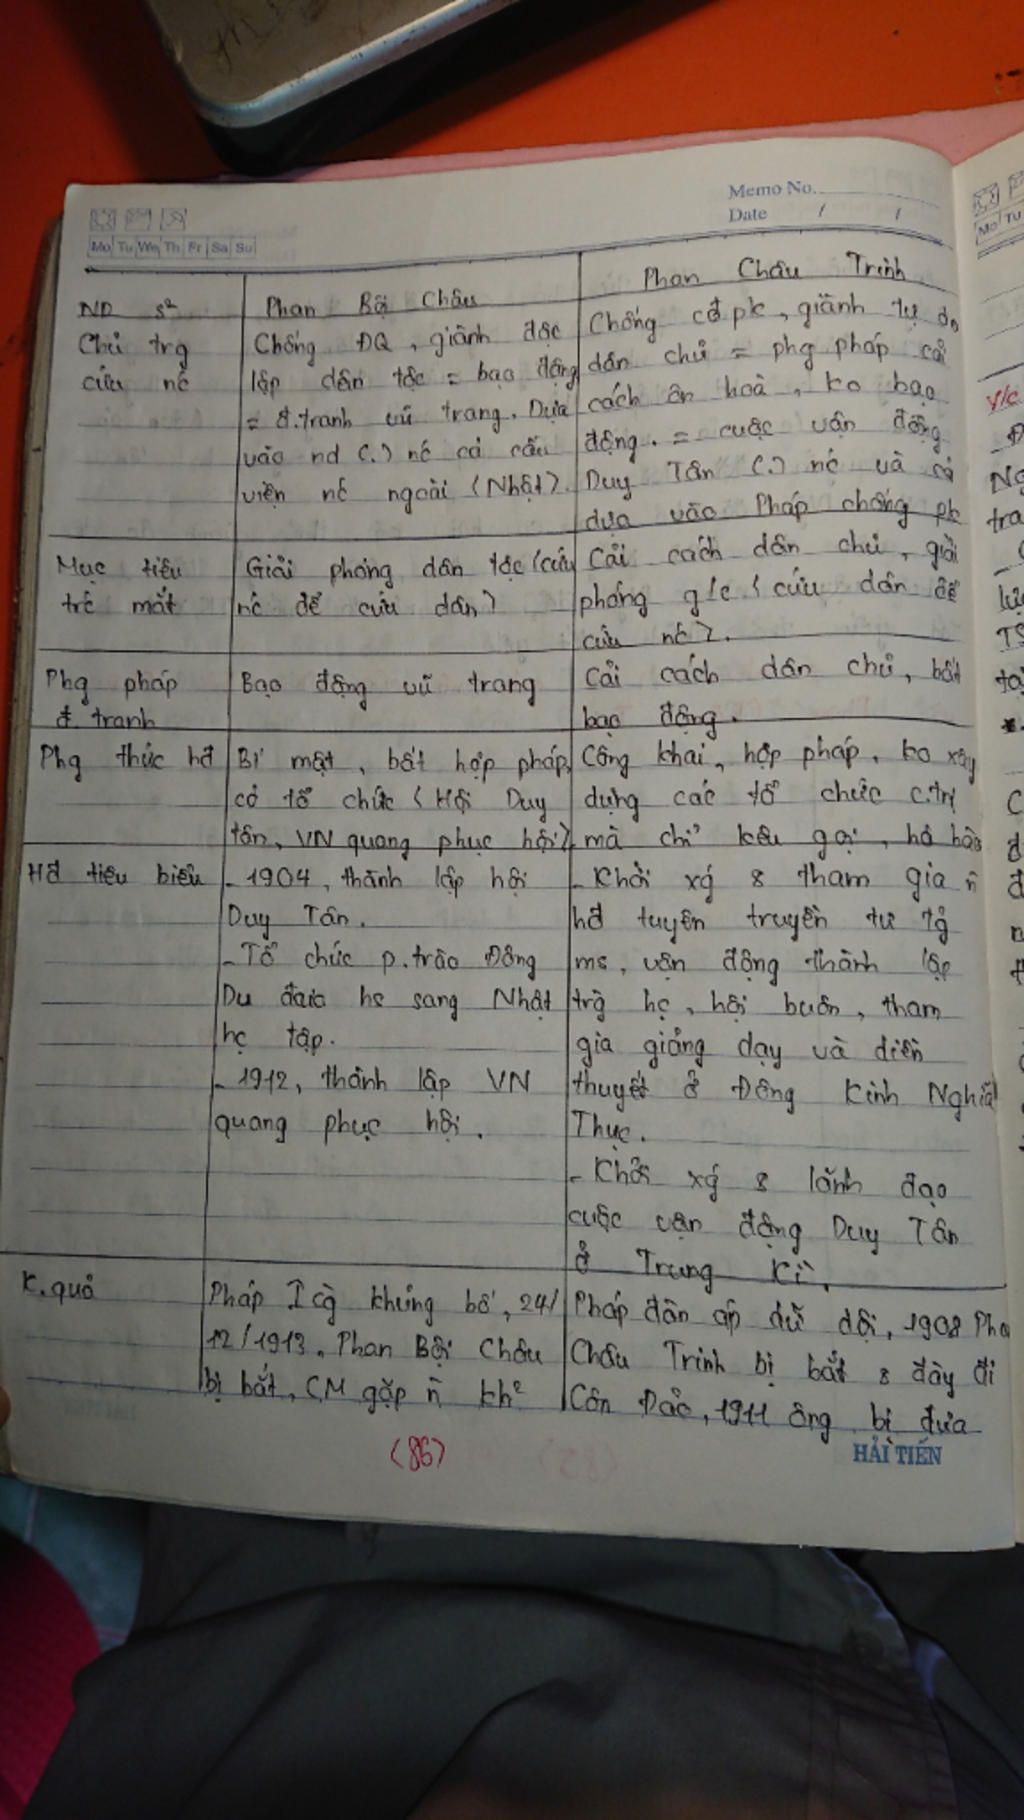 Memo No.
Date / /
Mo Tu We Th Fr Sa Su
ND s²
Phan Bội Châu
Phan Châu Trinh
Chủ trg
cứu nc
Chống ĐQ, giành độc
lập dân tộc = bạo động
= đ.tranh vũ trang. Dựa
vào nd (.) nc cả cầu
viện nc ngoài (Nhật).
Chống cđ pk, giành tự do
dân chủ = phg pháp cải
cách ôn hoà, ko bạo
động. = cuộc vận động
Duy Tân (.) nc và cả
dựa vào Pháp chống pk
Mục tiêu
trc mắt
Giải phóng dân tộc (cứu
nc để cứu dân)
Cải cách dân chủ, giải
phóng g/c (cứu dân để
cứu nc).
Phg pháp
đ. tranh
Bạo động vũ trang
Cải cách dân chủ, bất
bạo động.
Phg thức hđ
Bí mật, bất hợp pháp,
có tổ chức (Hội Duy
tân, VN quang phục hội).
Công khai, hợp pháp, ko xây
dựng các tổ chức c.trị
mà chỉ kêu gọi, hô hào
Hđ tiêu biểu
- 1904, thành lập hội
Duy Tân.
- Tổ chức p.trào Đông
Du đưa hs sang Nhật
hc tập.
- 1912, thành lập VN
quang phục hội.
- Khởi xg & tham gia n̄
hđ tuyên truyền tư tg
ms, vận động thành lập
trg hc, hội buôn, tham
gia giảng dạy và diễn
thuyết ở Đông Kinh Nghĩa
Thục.
- Khởi xg & lãnh đạo
cuộc vận động Duy Tân
ở Trung Kì.
K.quả
Pháp I cg khủng bố, 24/
12/1913, Phan Bội Châu
bị bắt, CM gặp n̄ kh²
Pháp đàn áp dữ dội, 1908 Pha
Châu Trinh bị bắt & đày đi
Côn Đảo, 1911 ông bị đưa
(86)
HẢI TIẾN
Mo Tu
y/c